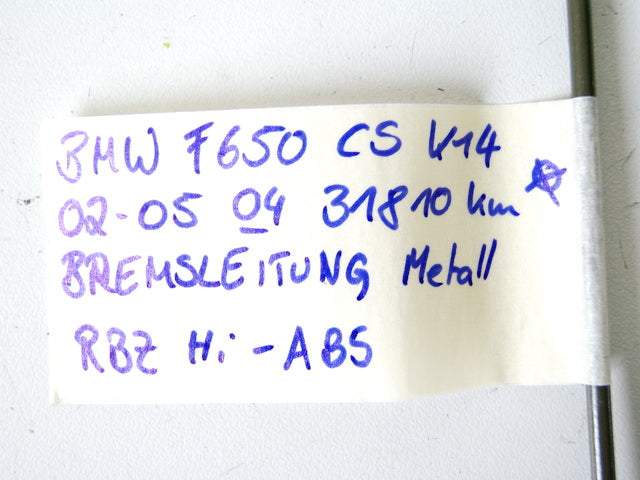 BMW F650 CS K14
02-05 04 31810 km
BREMSLEITUNG Metall
RBZ Hi-ABS